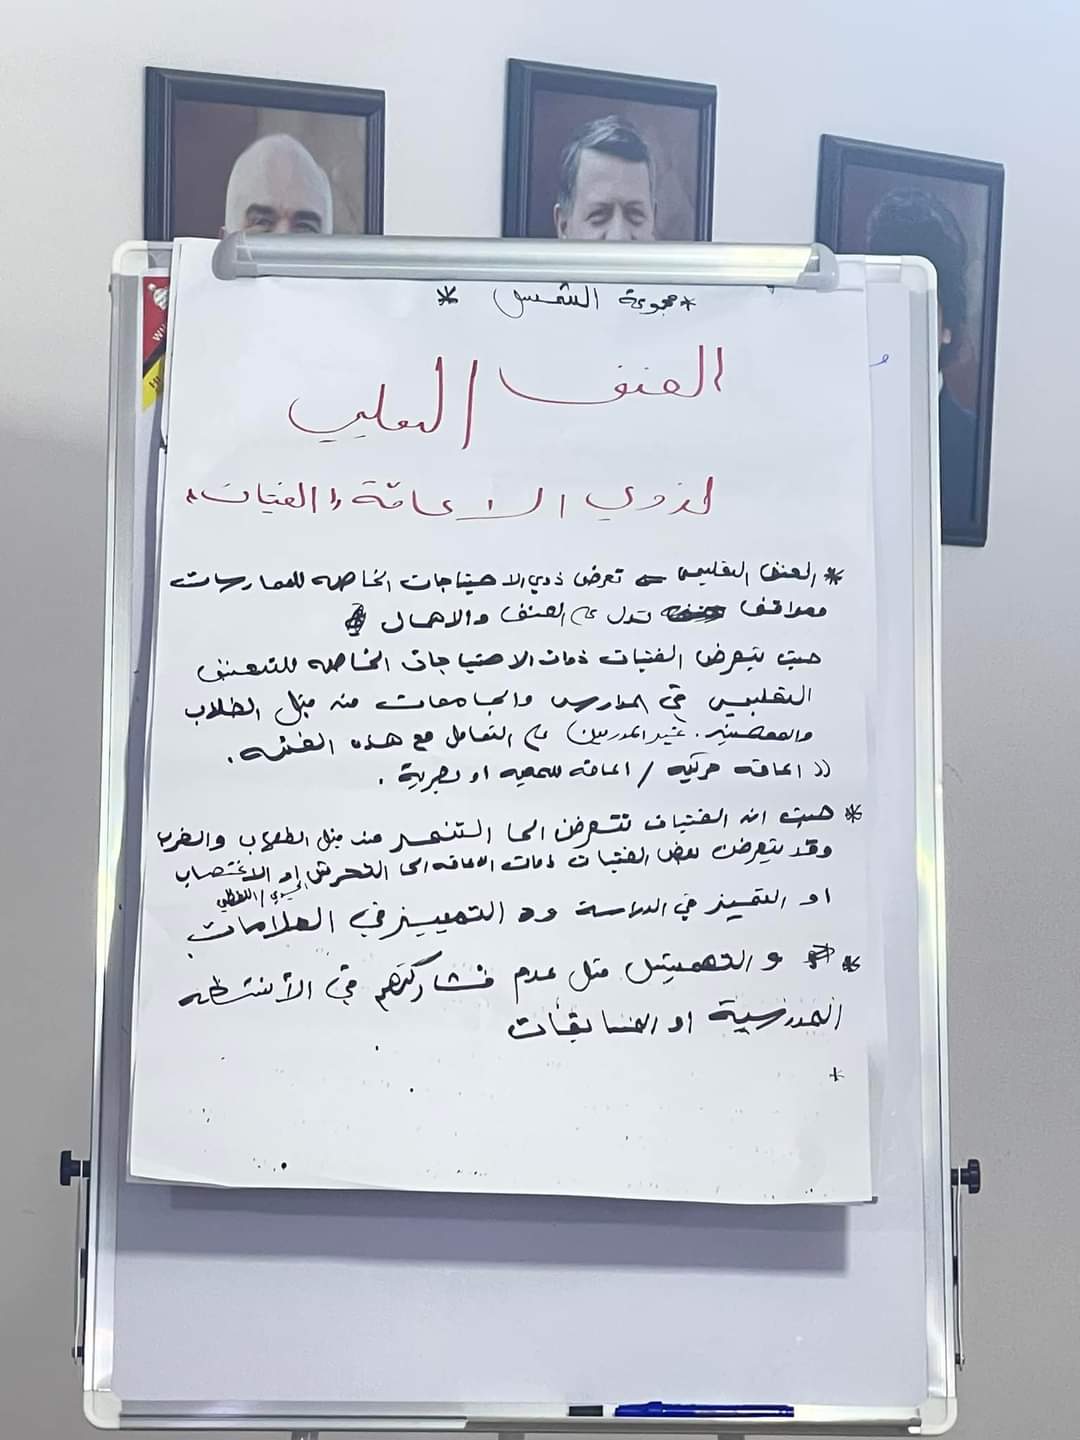 * مجموعة الشمس *
العنف التعليمي
لذوي الاعاقة "الفتيات"
* العنف التعليمي = تعرض ذوي الاحتياجات الخاصه للممارسات
ومواقف تدل على العنف والاهمال
حيث يتعرض الفتيات ذوات الاحتياجات الخاصه للتعنيف
التعليمي في المدارس والجامعات من قبل الطلاب
والمعلمين. غير المدربين على التعامل مع هذه الفئه.
(( اعاقه حركيه / اعاقه سمعيه او بصرية .
* حيث ان الفتيات تتعرض الى التنمر من قبل الطلاب والضرب
وقد يتعرض بعض الفتيات ذوات الاعاقه الى التحرش او الاغتصاب
الجسدي / اللفظي
او التميز في الدراسة و التمييز في العلامات
* و التهميش مثل عدم مشاركتهم في الأنشطه
المدرسية او المسابقات
*